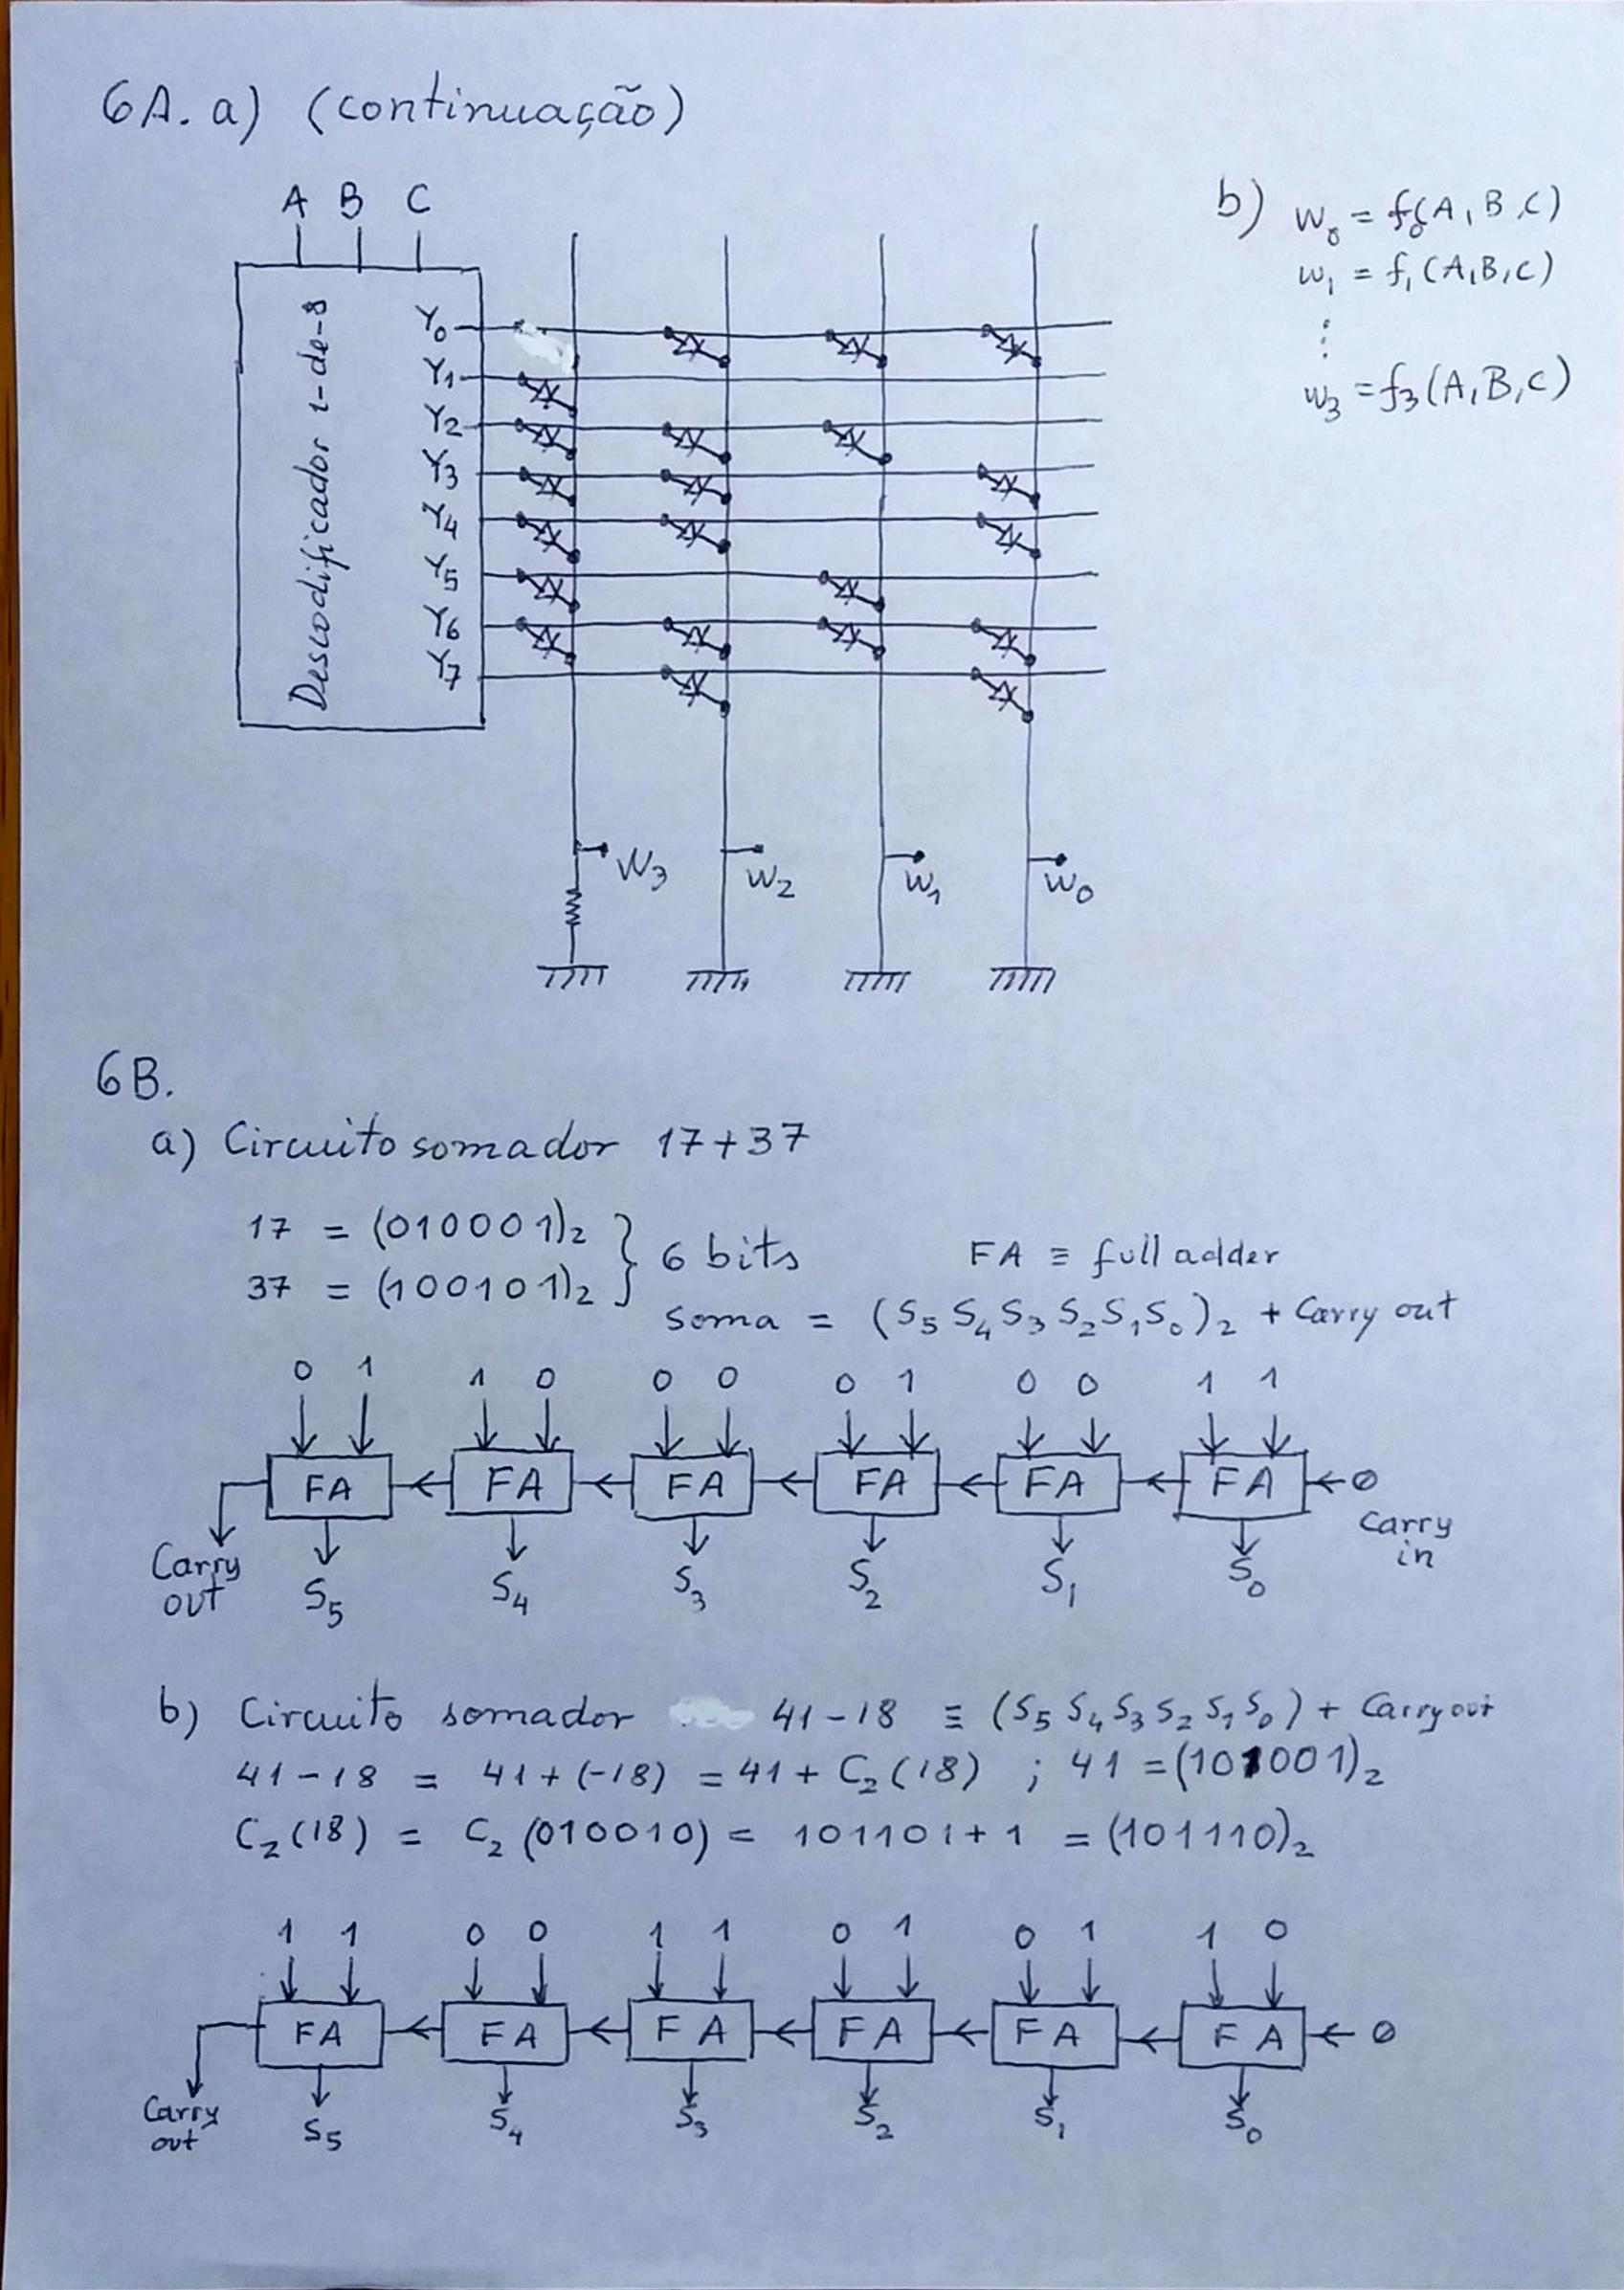 6A. a) (continuação)
A B C
Descodificador 1-de-8
Y0
Y1
Y2
Y3
Y4
Y5
Y6
Y7
W3 W2 W1 W0
b) W0 = f0(A, B, C)
W1 = f1(A, B, C)
⋮
W3 = f3(A, B, C)
6B.
a) Circuito somador 17+37
17 = (010001)2 } 6 bits
37 = (100101)2
FA ≡ full adder
Soma = (S5 S4 S3 S2 S1 S0)2 + Carry out
0 1 1 0 0 0 0 1 0 0 1 1
FA FA FA FA FA FA 0
Carry in
Carry out
S5 S4 S3 S2 S1 S0
b) Circuito somador 41-18 ≡ (S5 S4 S3 S2 S1 S0) + Carry out
41-18 = 41+(-18) = 41 + C2(18) ; 41 = (101001)2
C2(18) = C2(010010) = 101101+1 = (101110)2
1 1 0 0 1 1 0 1 0 1 1 0
FA FA FA FA FA FA 0
Carry out
S5 S4 S3 S2 S1 S0